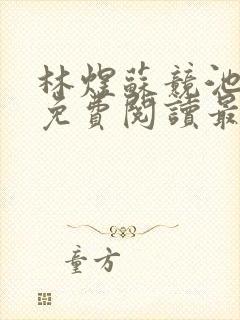 林煜蘇競池
免費閱讀最
童方